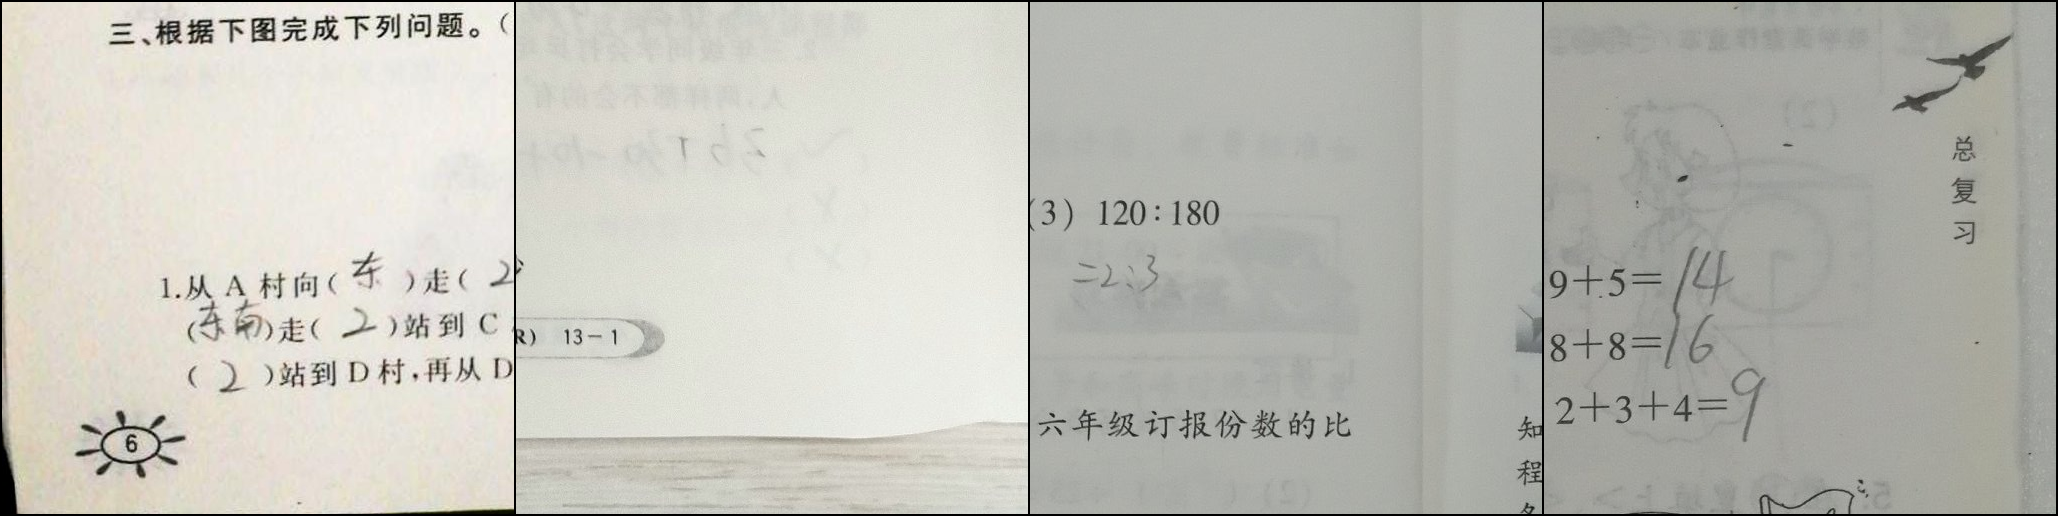 三、根据下图完成下列问题。(
1.从 A 村向( 东 )走( 2
(东南)走( 2 )站到 C
( 2 )站到 D 村,再从 D
6
R) 13-1
(3) 120:180
=2:3
六年级订报份数的比
知
程
总复习
9+5=14
8+8=16
2+3+4=9